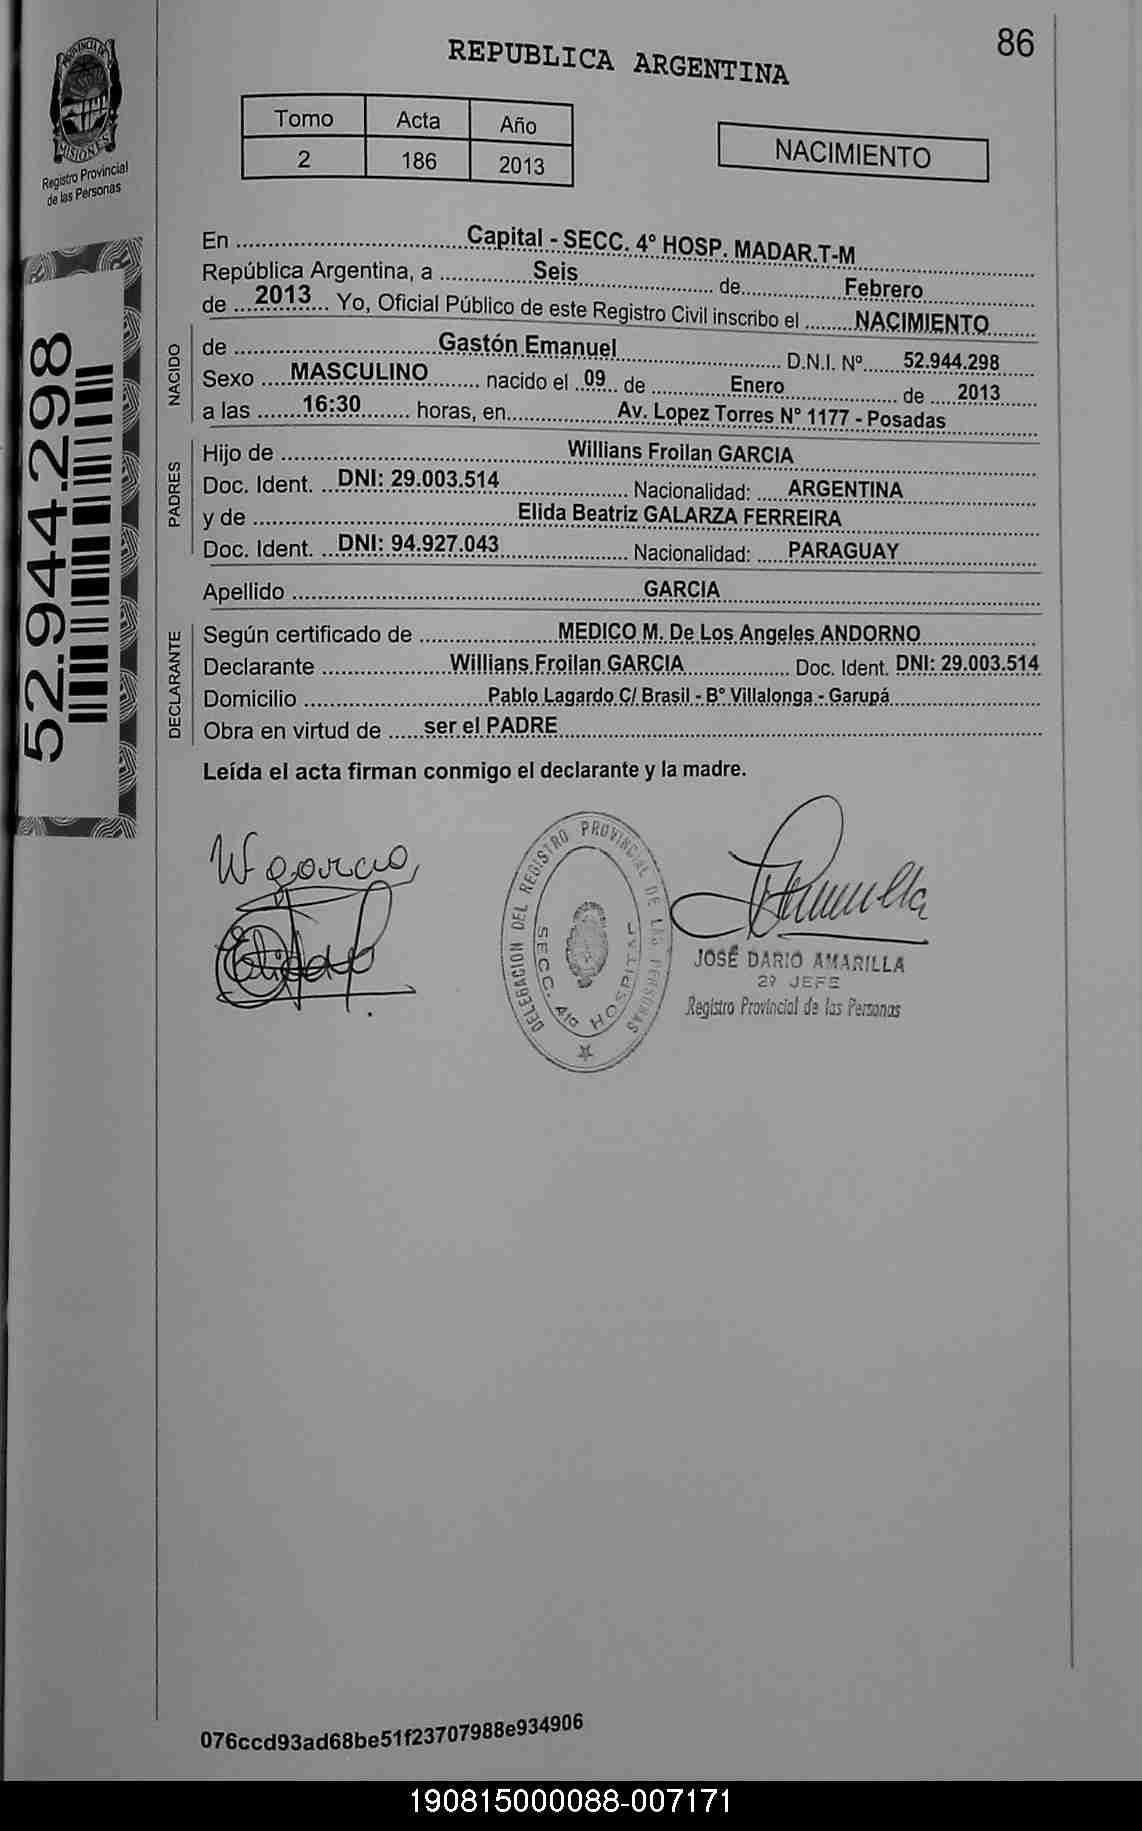 86
REPUBLICA ARGENTINA
PROVINCIA DE
MISIONES
Registro Provincial
de las Personas
Tomo Acta Año
2 186 2013
NACIMIENTO
52.944.298
En Capital - SECC. 4° HOSP. MADAR.T-M
República Argentina, a Seis de Febrero
de 2013 Yo, Oficial Público de este Registro Civil inscribo el NACIMIENTO
NACIDO
de Gastón Emanuel D.N.I. N° 52.944.298
Sexo MASCULINO nacido el 09 de Enero de 2013
a las 16:30 horas, en Av. Lopez Torres N° 1177 - Posadas
PADRES
Hijo de Willians Froilan GARCIA
Doc. Ident. DNI: 29.003.514 Nacionalidad: ARGENTINA
y de Elida Beatriz GALARZA FERREIRA
Doc. Ident. DNI: 94.927.043 Nacionalidad: PARAGUAY
Apellido GARCIA
DECLARANTE
Según certificado de MEDICO M. De Los Angeles ANDORNO
Declarante Willians Froilan GARCIA Doc. Ident. DNI: 29.003.514
Domicilio Pablo Lagardo C/ Brasil - B° Villalonga - Garupá
Obra en virtud de ser el PADRE
Leída el acta firman conmigo el declarante y la madre.
W garcia
DELEGACION DEL REGISTRO PROVINCIAL DE LAS PERSONAS
SECC. 4ta HOSPITAL
JOSÉ DARIO AMARILLA
2º JEFE
Registro Provincial de las Personas
076ccd93ad68be51f23707988e934906
190815000088-007171